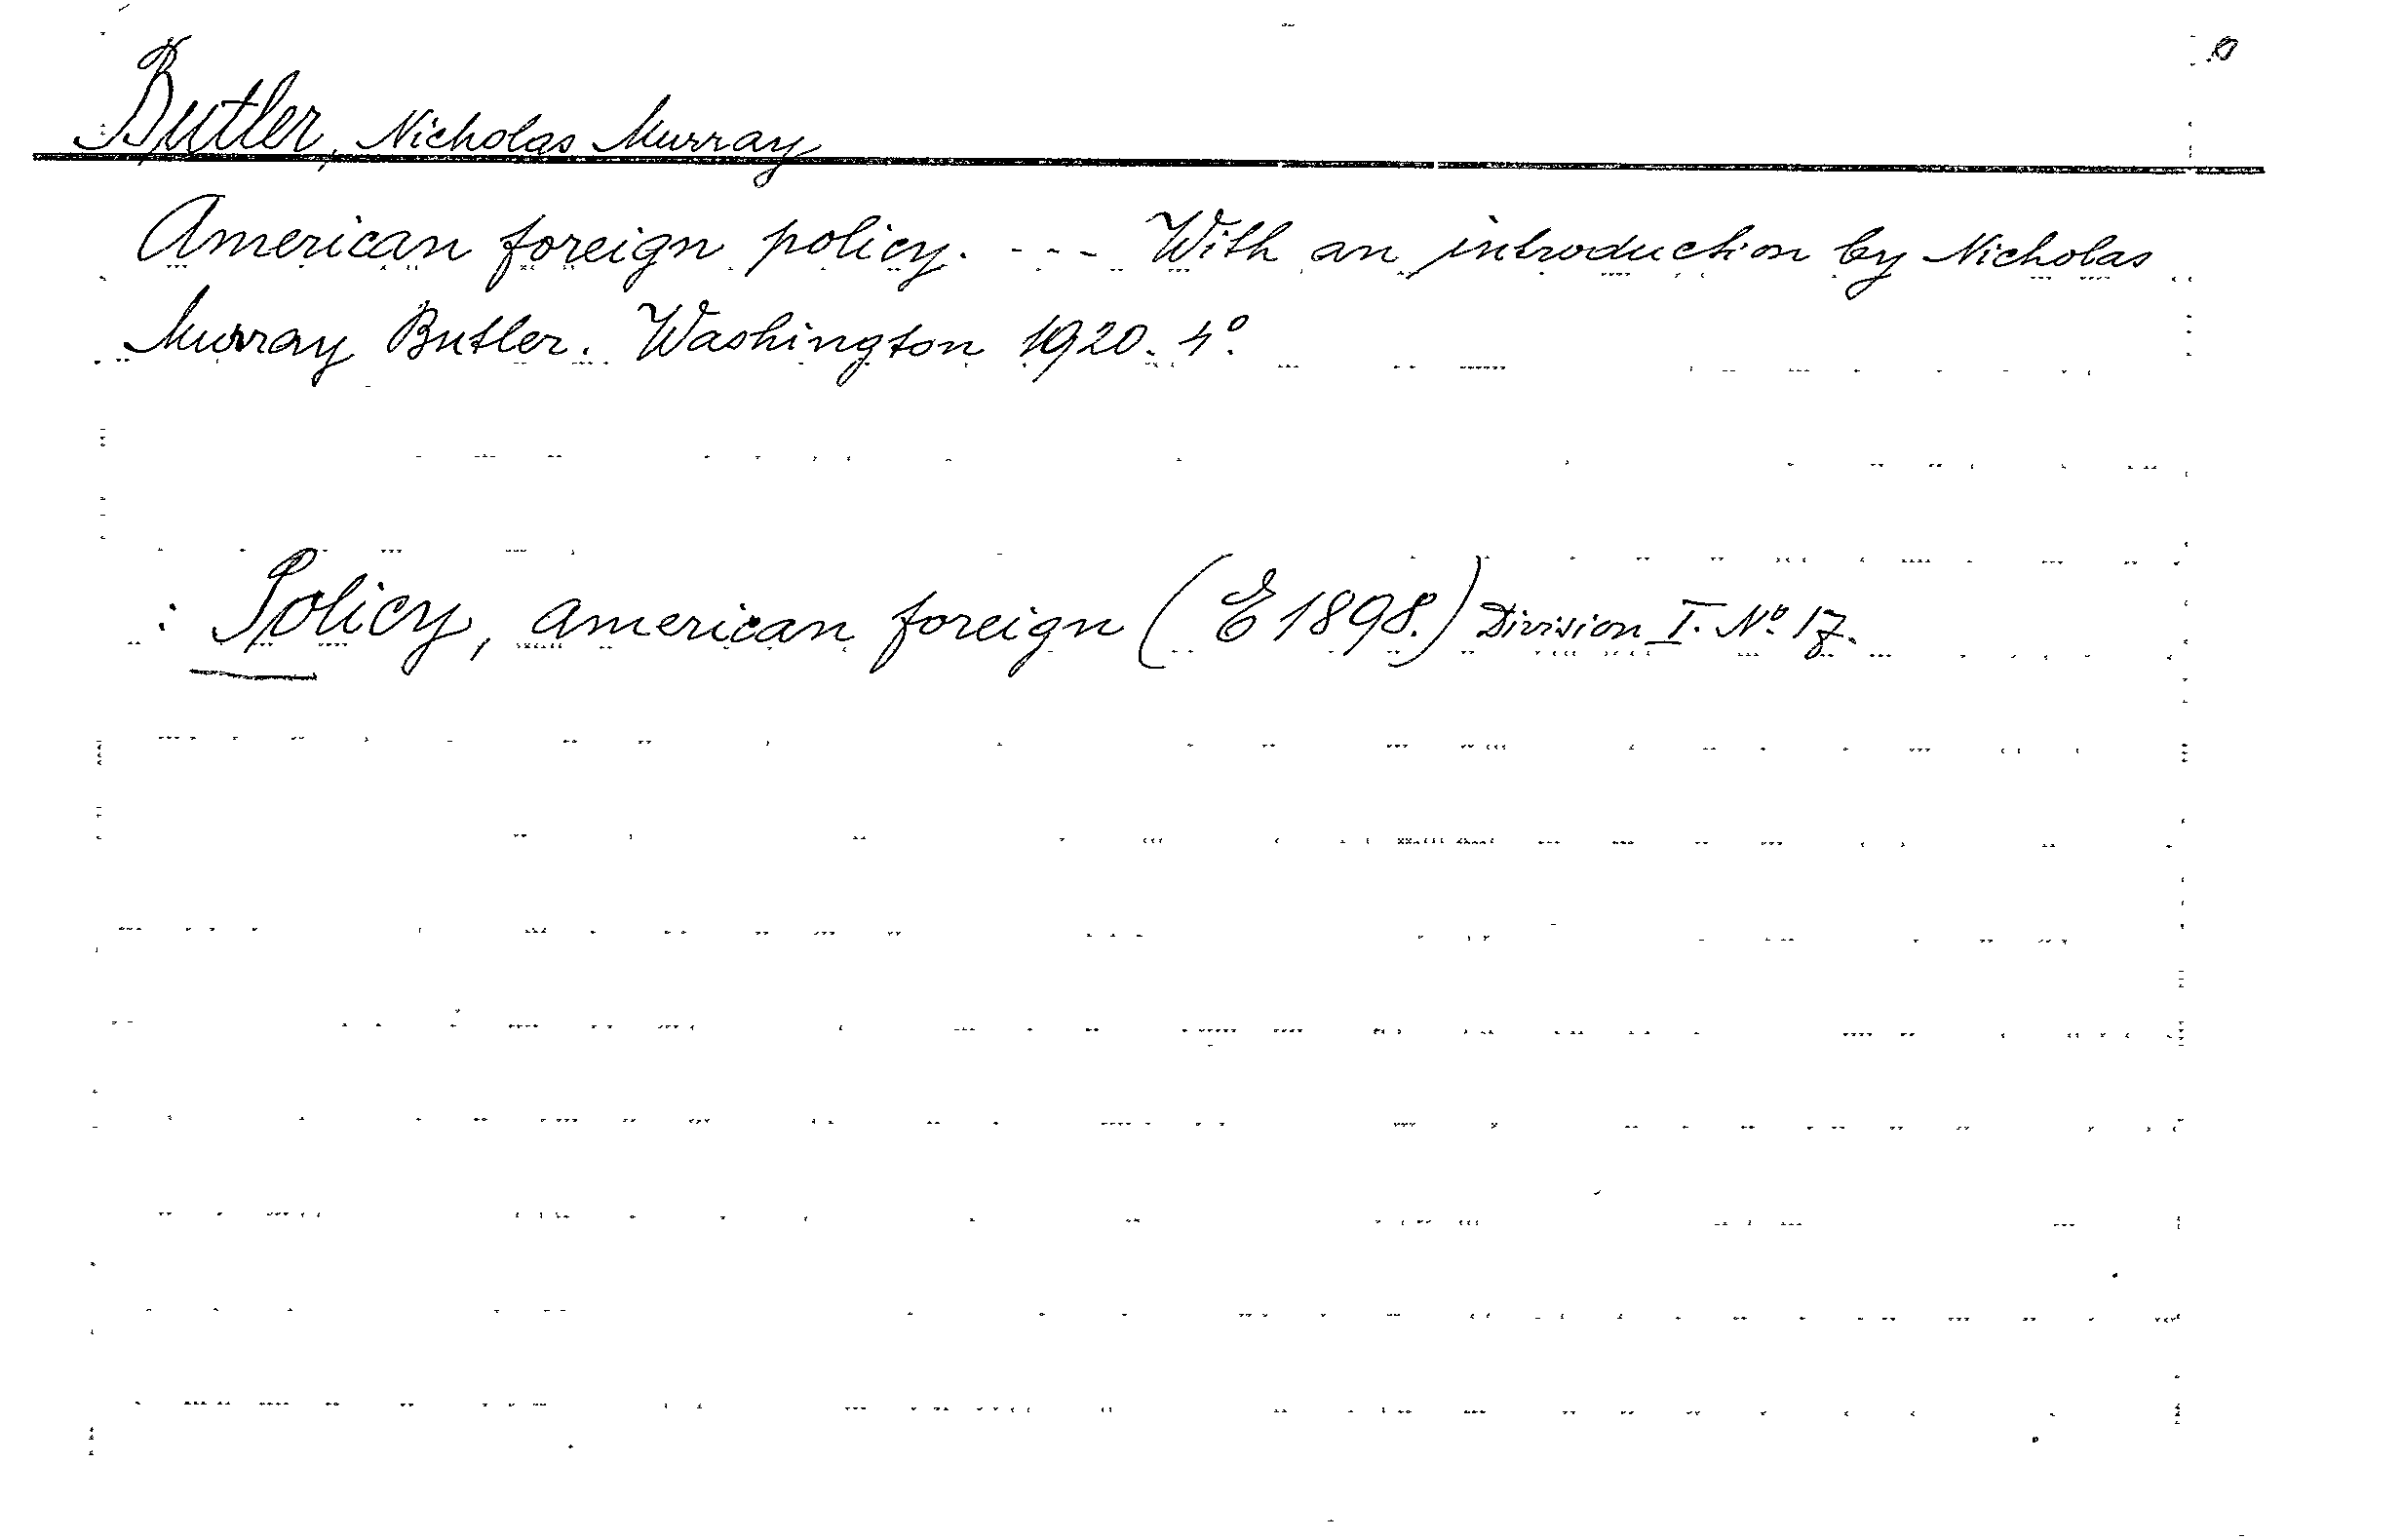 Butler, Nicholas Murray
American foreign policy. - - - With an introduction by Nicholas
Murray Butler. Washington 1920. 4º.
: Policy, american foreign (E 1898.) Division I. Nº. 17.